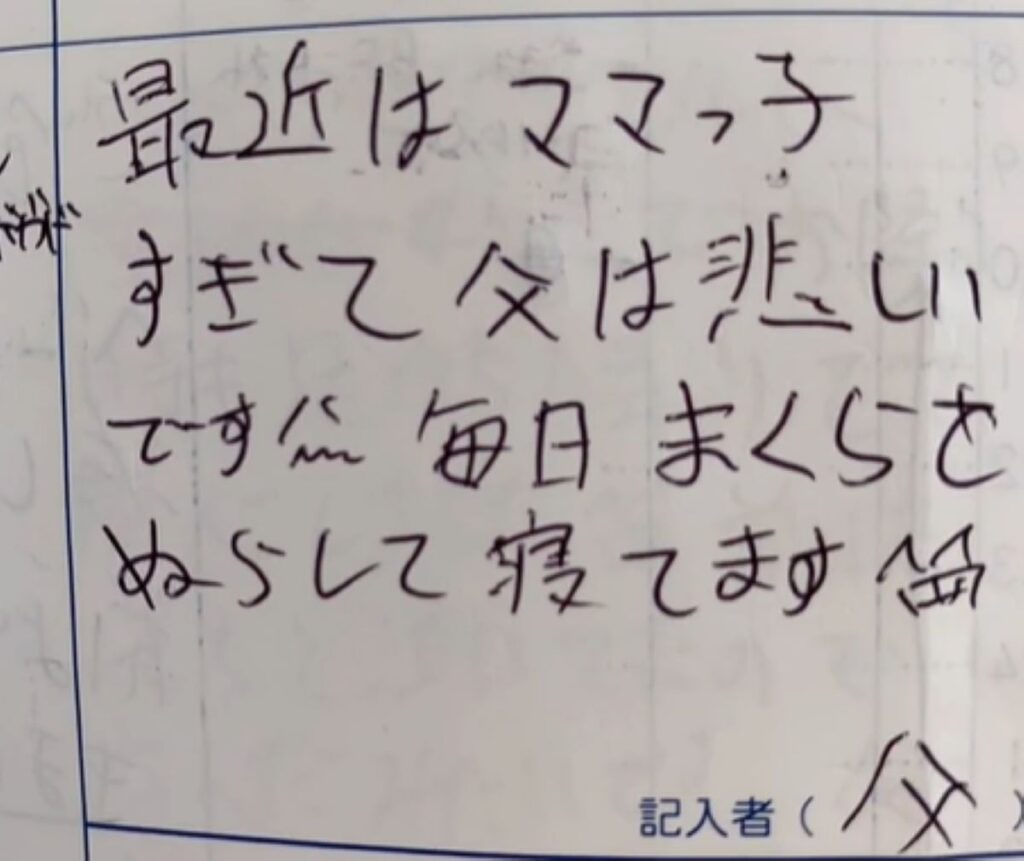 最近はママっ子
すぎて父は悲しい
です 毎日まくらを
ぬらして寝てます
記入者(父)